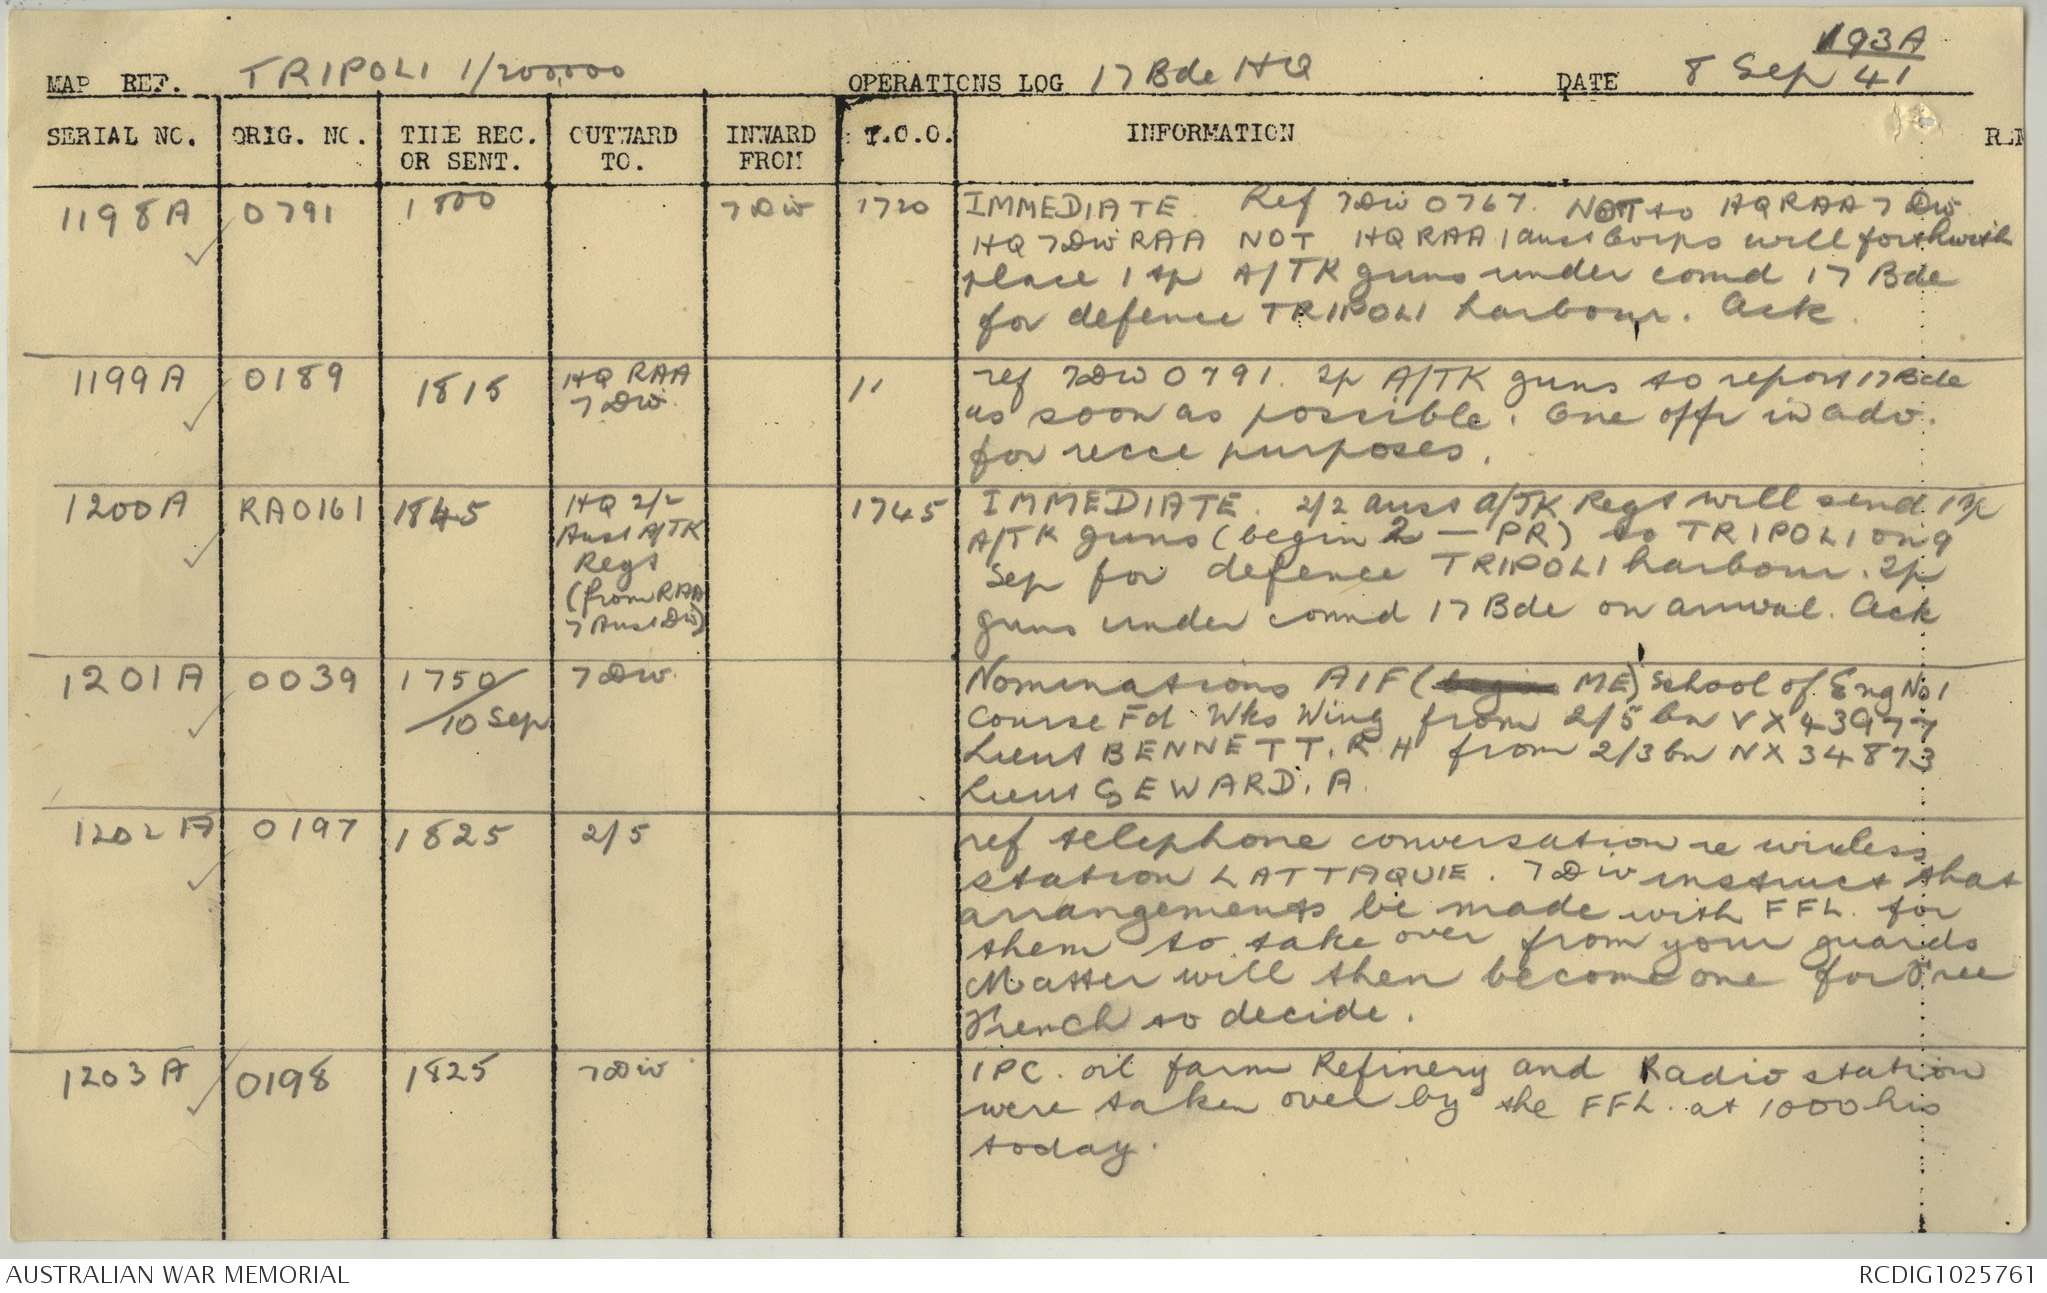 193A
MAP REF. TRIPOLI 1/200,000 OPERATIONS LOG 17 Bde HQ DATE 8 Sep 41
SERIAL NO. ORIG. NO. TIME REC. OR SENT. OUTWARD TO. INWARD FROM T.O.O. INFORMATION REM
1198A 0791 1800 7 Div 1720 IMMEDIATE. Ref 7 Div 0767. NOT to HQ RAA 7 Div
HQ 7 Div RAA NOT HQ RAA 1 aust Corps will forthwith
place 1 tp A/TK guns under comd 17 Bde
for defence TRIPOLI harbour. Ack.
1199A 0189 1815 HQ RAA 7 Div 11 ref 7 Div 0791. Tp A/TK guns to report 17 Bde
as soon as possible. One offr in adv.
for recce purposes.
1200A RA0161 1845 HQ 2/2 Aust A/TK Regt (from RAA 7 Aust Div) 1745 IMMEDIATE. 2/2 aust A/TK Regt will send 1 Tp
A/TK guns (begin 2 — PR) to TRIPOLI on 9
Sep for defence TRIPOLI harbour. Tp
guns under comd 17 Bde on arrival. Ack
1201A 0039 1750/10 Sep 7 Div. Nominations AIF (ME) School of Eng No 1
Course Fd Wks Wing from 2/5 bn VX43977
Lieut BENNETT. R H from 2/3 bn NX34873
Lieut SEWARD. A.
1202A 0197 1825 2/5 ref telephone conversation re wireless
station LATTAQUIE. 7 Div instruct that
arrangements be made with FFL. for
them to take over from your guards
Matter will then become one for Free
French to decide.
1203A 0198 1825 7 Div IPC. oil farm Refinery and Radio station
were taken over by the FFL. at 1000 hrs
today.
AUSTRALIAN WAR MEMORIAL RCDIG1025761